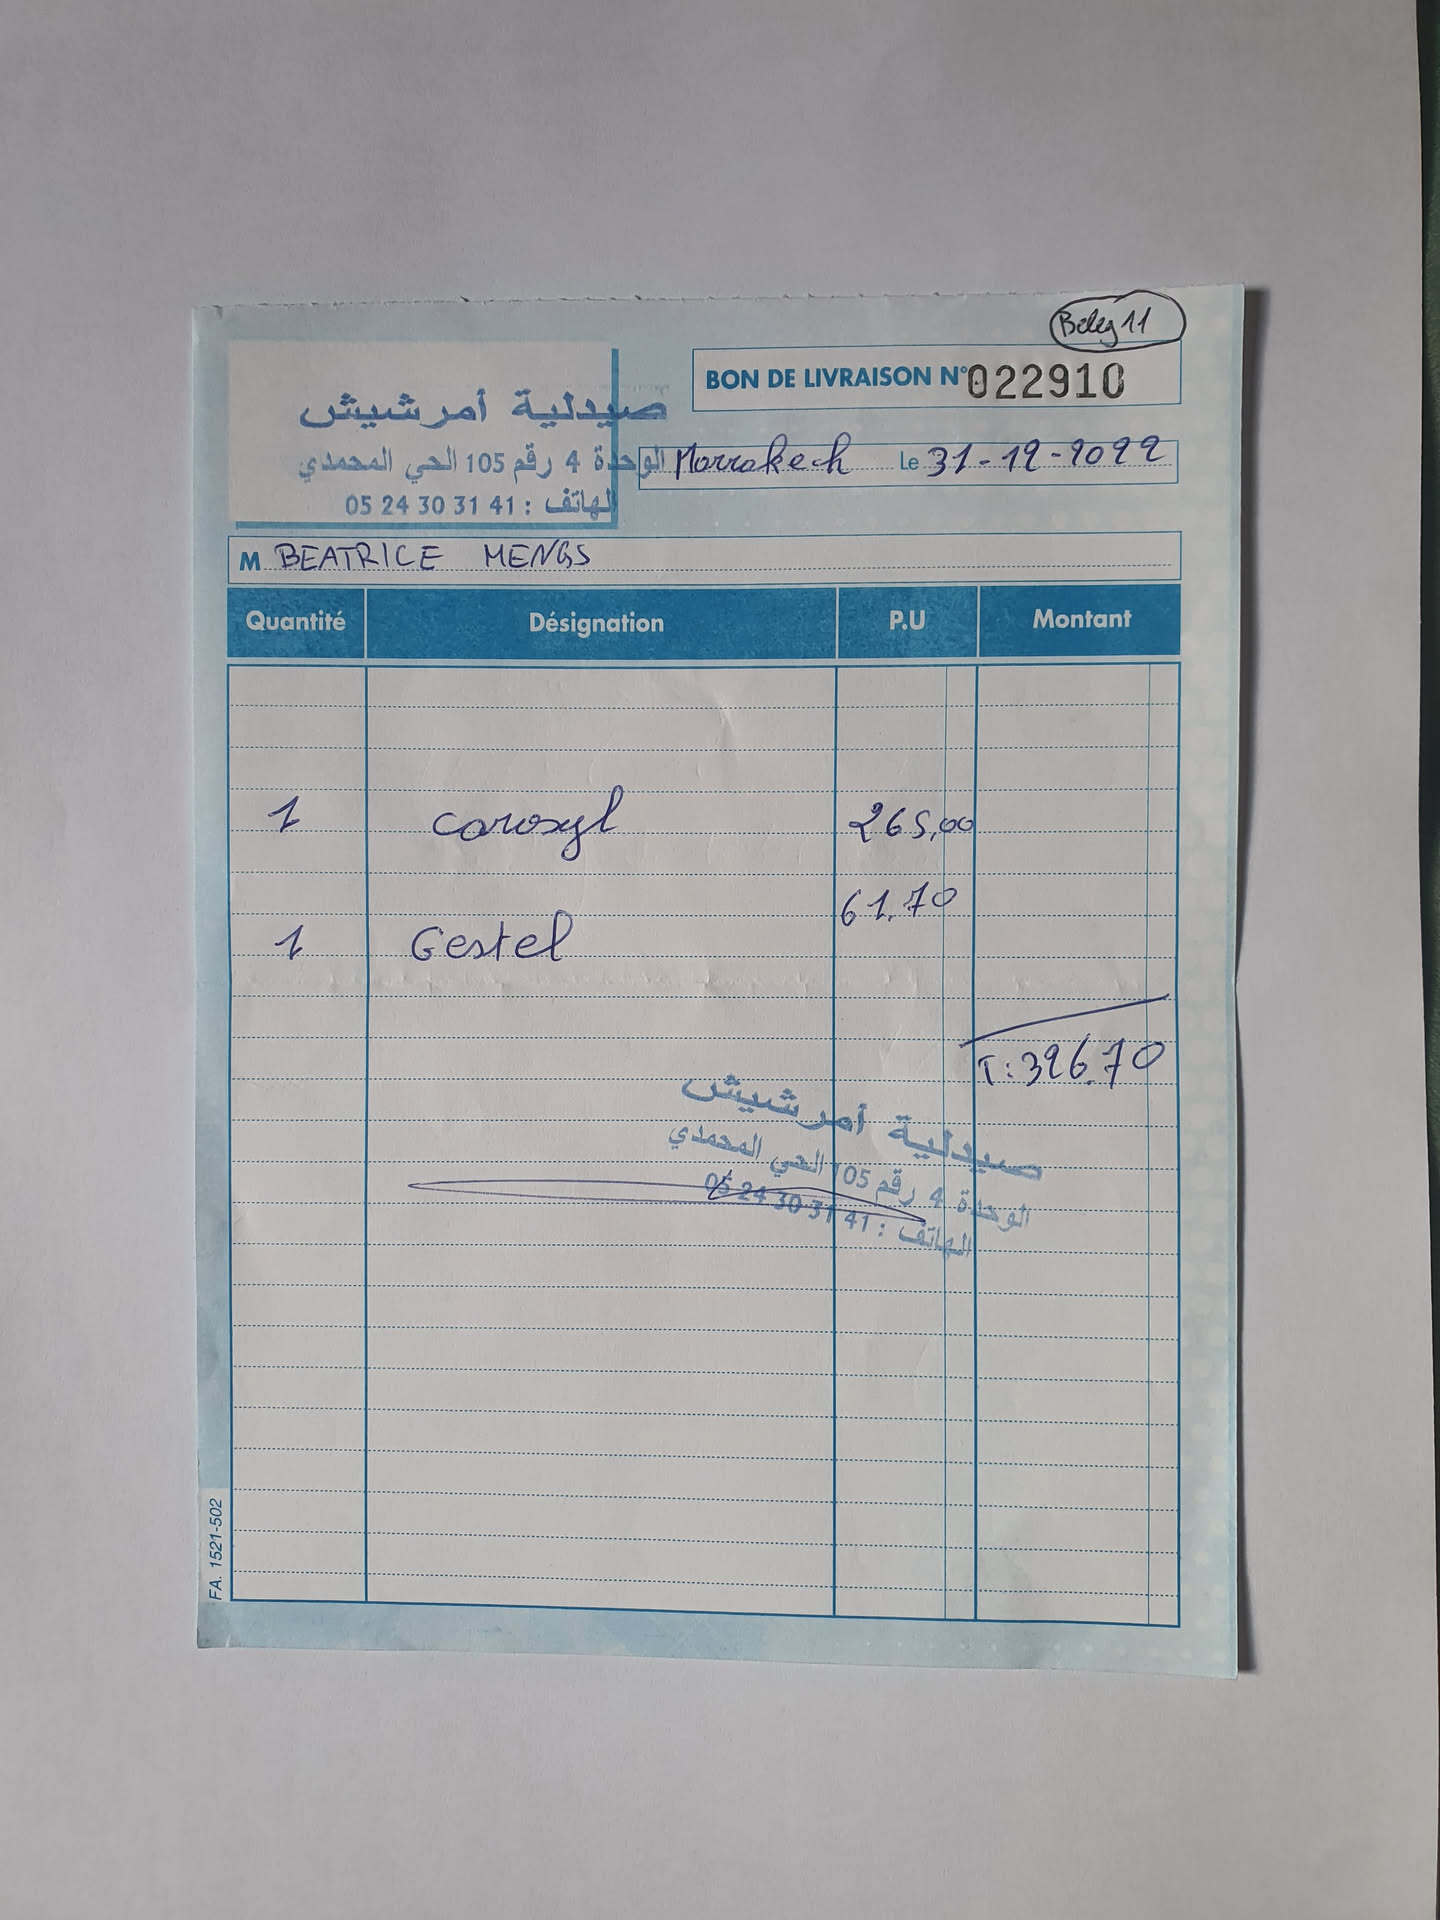 Beleg 11
BON DE LIVRAISON N° 022910
صيدلية أمرشيش
الوحدة 4 رقم 105 الحي المحمدي
الهاتف : 05 24 30 31 41
Marrakech Le 31-12-2022
M BEATRICE MENGS
Quantité Désignation P.U Montant
1 Carosyl 265,00
61.70
1 Gestel
T: 326.70
صيدلية أمرشيش
الوحدة 4 رقم 105 الحي المحمدي
الهاتف : 05 24 30 31 41
FA. 1521-502